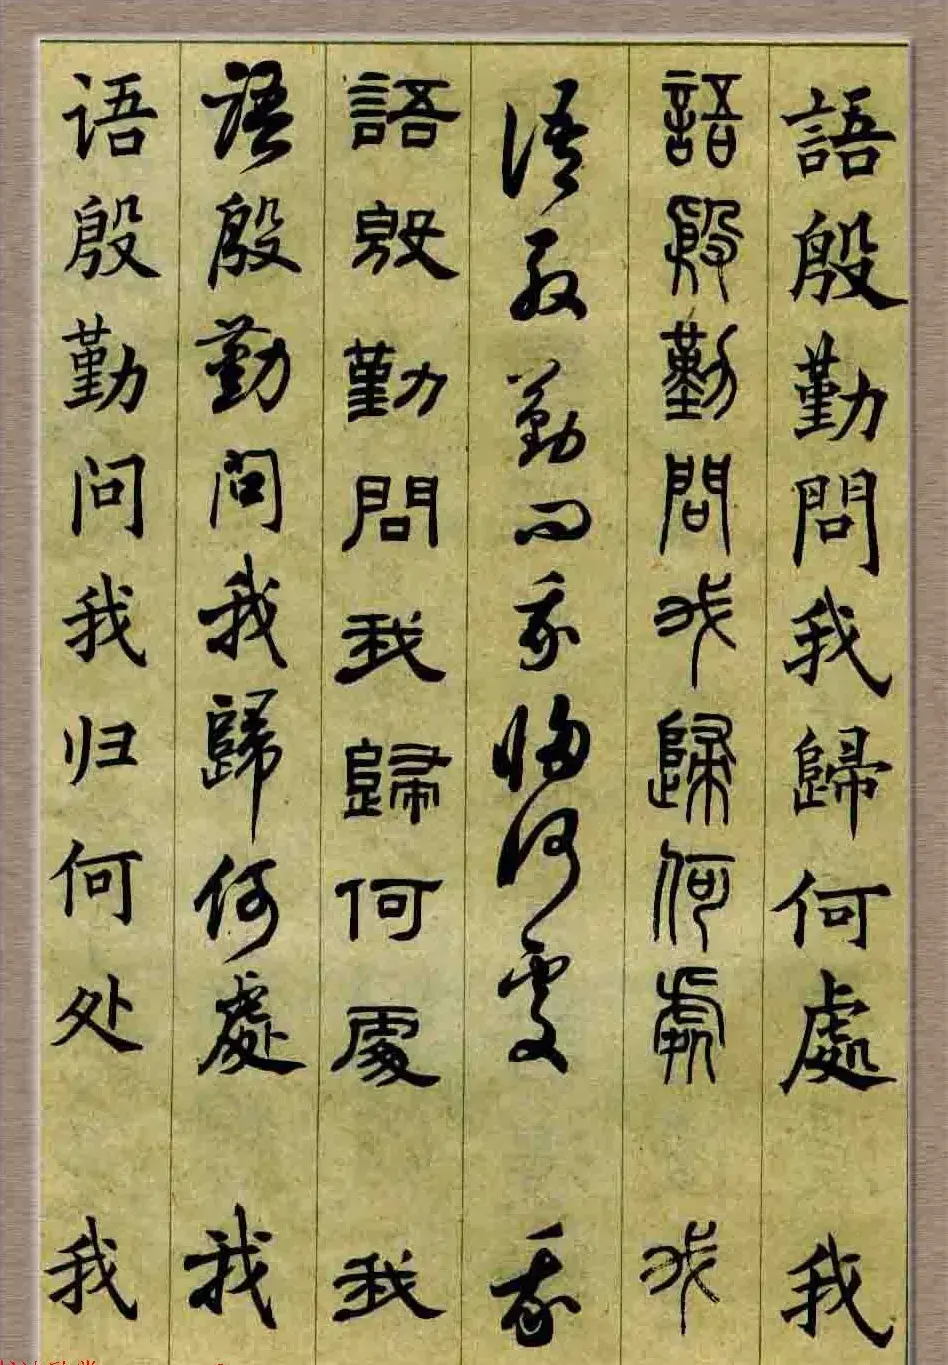 語殷勤問我歸何處 我
語殷勤問我歸何處 我
語殷勤問我歸何處 我
語殷勤問我歸何處 我
語殷勤問我歸何處 我
语殷勤问我归何处 我